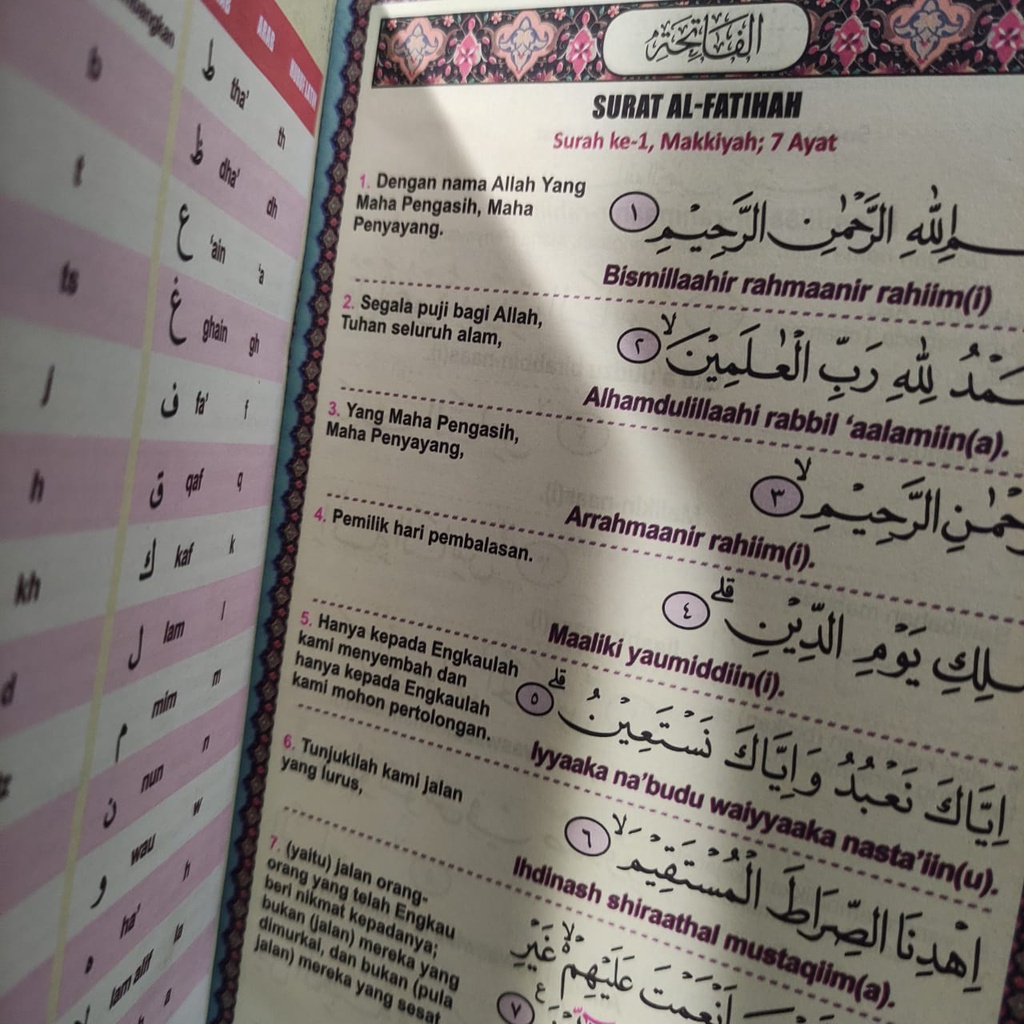 ARAB
b
ط tha' th
t
ظ dha' dh
ts
ع 'ain 'a
j
غ ghain gh
ف fa' f
h
ق qaf q
kh
ك kaf k
d
ل lam l
م mim m
ن nun n
و wau w
ه ha' h
lam alif la
a
الفاتحة
SURAT AL-FATIHAH
Surah ke-1, Makkiyah; 7 Ayat
1. Dengan nama Allah Yang
Maha Pengasih, Maha
Penyayang.
اللّٰهِ الرَّحْمٰنِ الرَّحِيْمِ ١
Bismillaahir rahmaanir rahiim(i)
2. Segala puji bagi Allah,
Tuhan seluruh alam,
لِلّٰهِ رَبِّ الْعٰلَمِيْنَۙ ٢
Alhamdulillaahi rabbil ‘aalamiin(a).
3. Yang Maha Pengasih,
Maha Penyayang,
الرَّحِيْمِۙ ٣
Arrahmaanir rahiim(i).
4. Pemilik hari pembalasan.
يَوْمِ الدِّيْنِۗ ٤
Maaliki yaumiddiin(i).
5. Hanya kepada Engkaulah
kami menyembah dan
hanya kepada Engkaulah
kami mohon pertolongan.
اِيَّاكَ نَعْبُدُ وَاِيَّاكَ نَسْتَعِيْنُۗ ٥
Iyyaaka na’budu waiyyaaka nasta’iin(u).
6. Tunjukilah kami jalan
yang lurus,
اِهْدِنَا الصِّرَاطَ الْمُسْتَقِيْمَۙ ٦
Ihdinash shiraathal mustaqiim(a).
7. (yaitu) jalan orang-
orang yang telah Engkau
beri nikmat kepadanya;
bukan (jalan) mereka yang
dimurkai, dan bukan (pula
jalan) mereka yang sesat
اَنْعَمْتَ عَلَيْهِمْ ەۙ غَيْرِ
٧